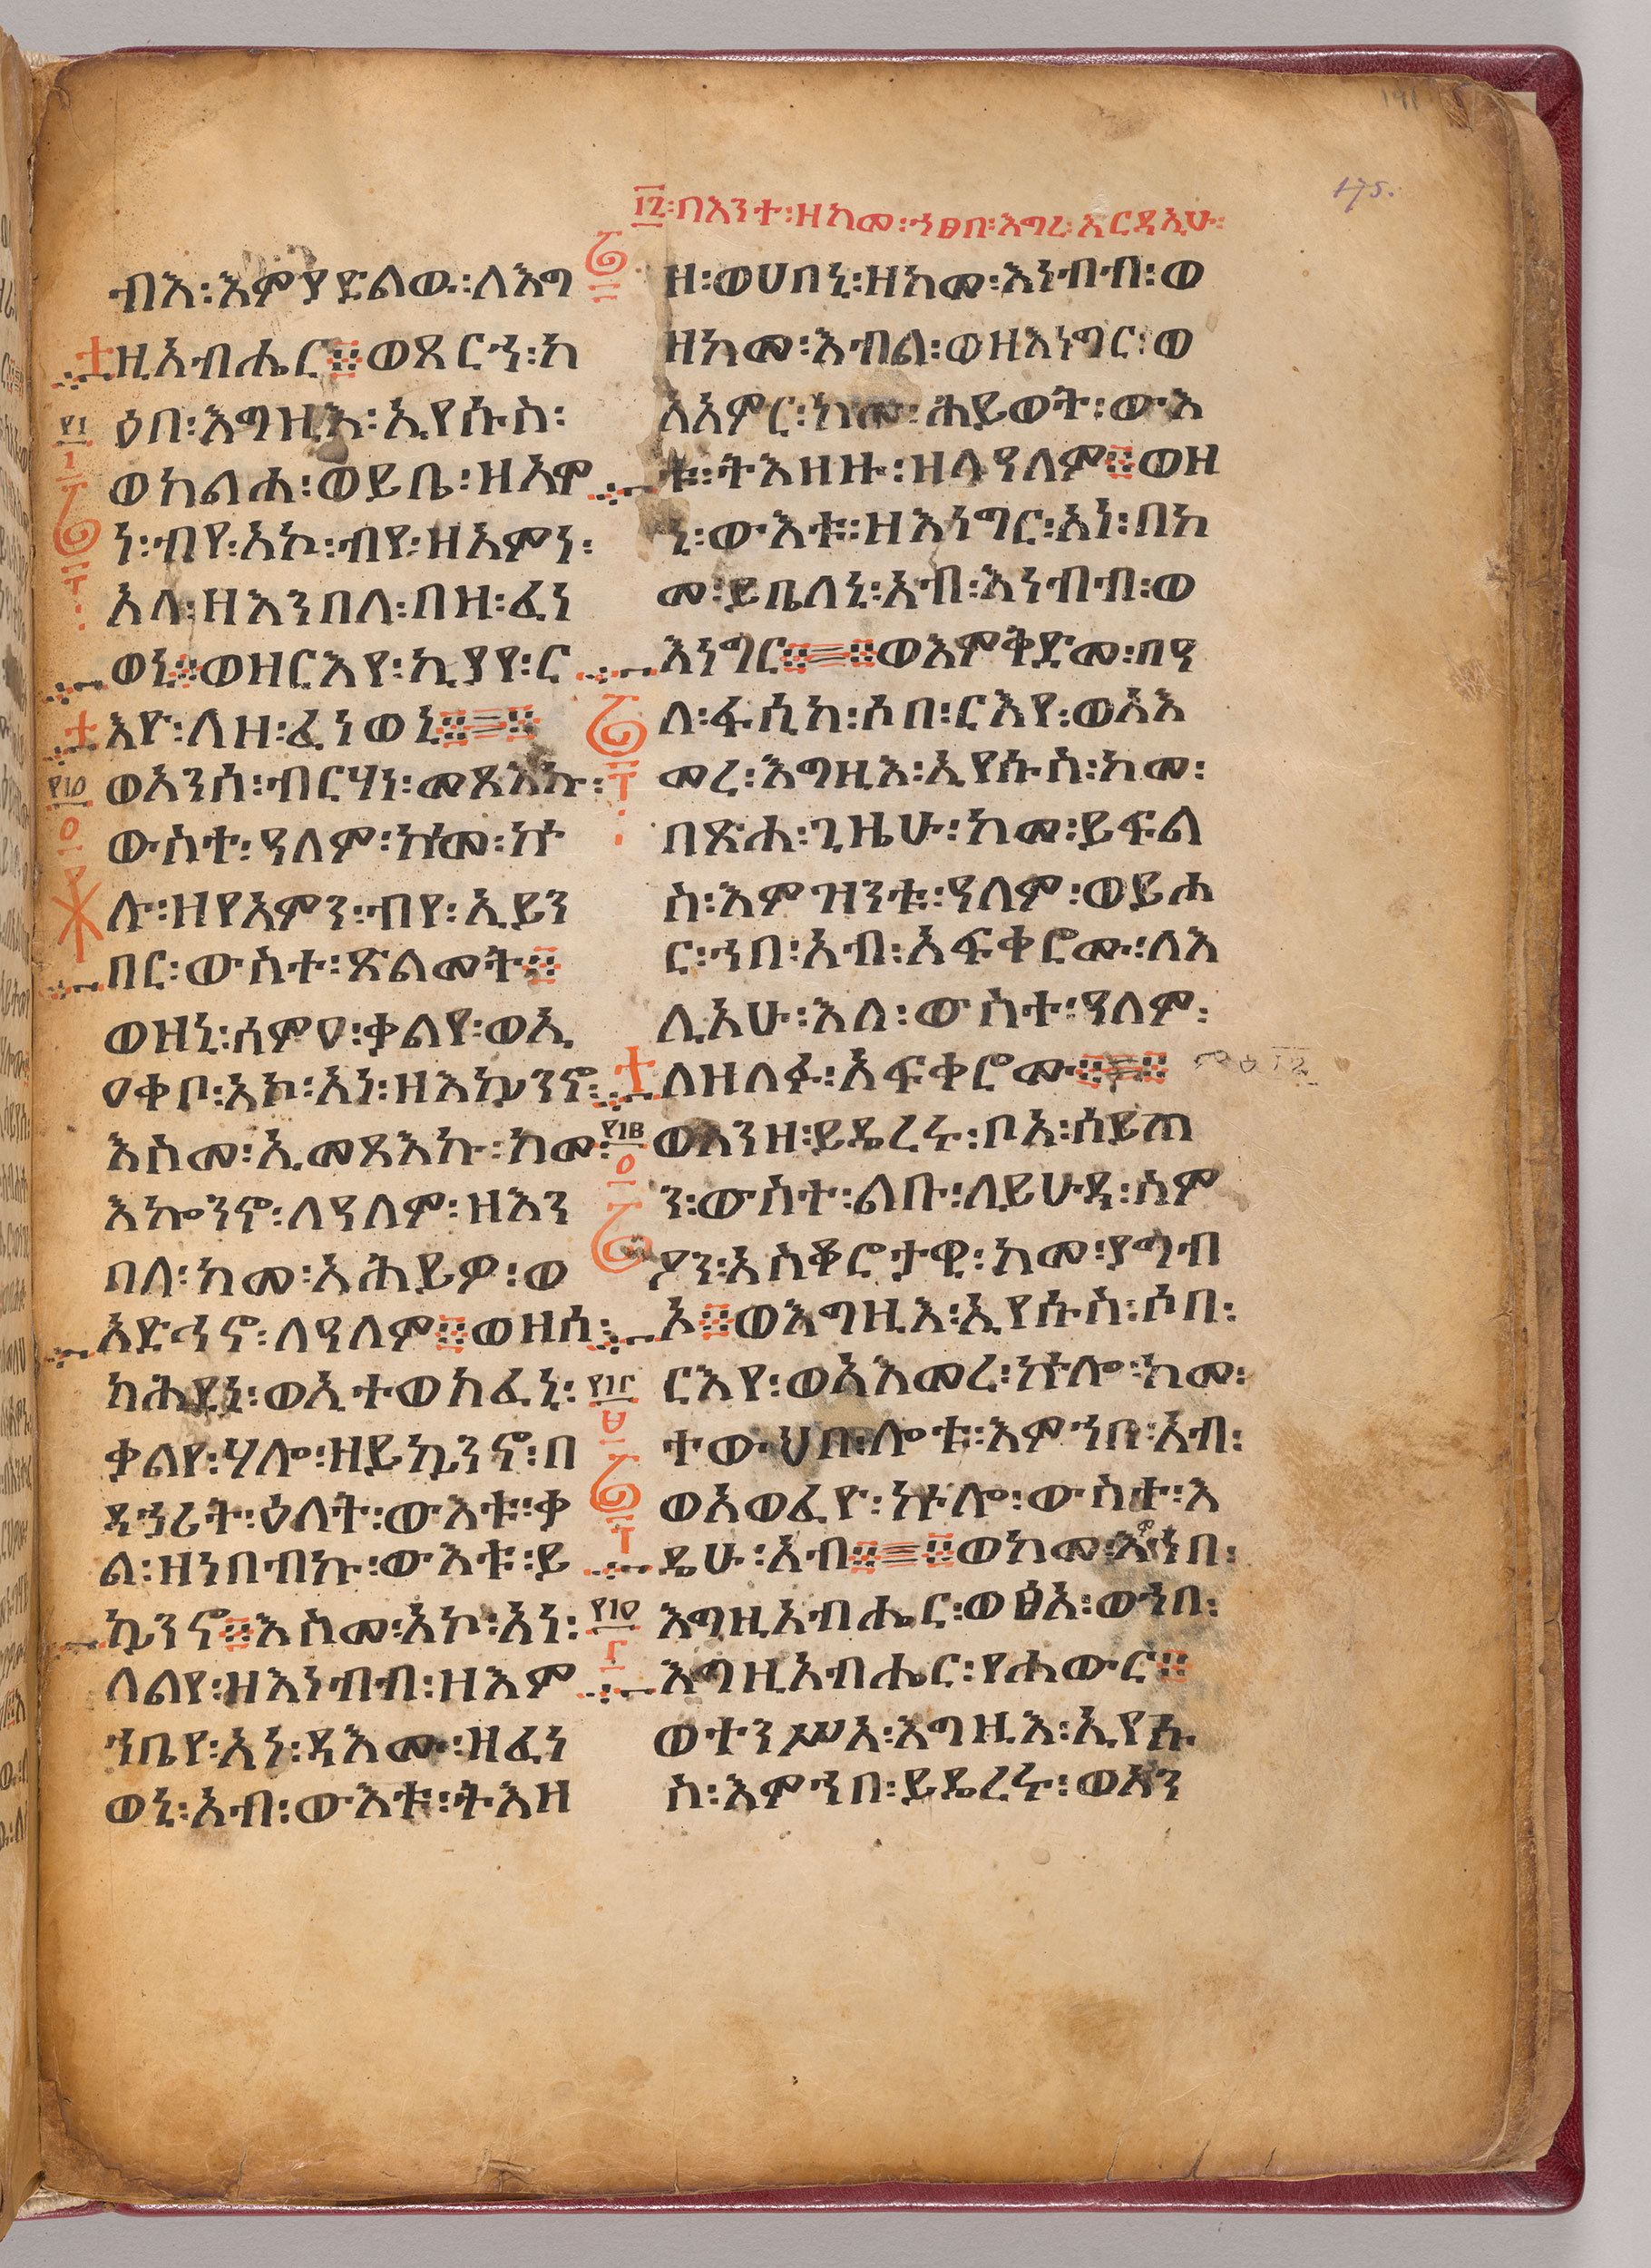 ፲፯፡በእንተ፡ዘከመ፡ኀፀበ፡እግረ፡አርዳኢሁ፡
175.
ብእ፡እምያድልዉ፡ለእግ
ዚአብሔር፨ወጸርኀ፡ከ
ዕበ፡እግዚእ፡ኢየሱስ፡
ወከልሐ፡ወይቤ፡ዘአም
ነ፡ብየ፡አኮ፡ብየ፡ዘአምነ፡
አላ፡ዘእንበለ፡በዘ፡ፈነ
ወኒ፨ወዘርእየ፡ኪያየ፡ር
እዮ፡ለዘ፡ፈነወኒ፨፨
ወአንሰ፡ብርሃነ፡መጻእኩ፡
ውስተ፡ዓለም፡ከመ፡ኵ
ሉ፡ዘየአምን፡ብየ፡ኢይን
በር፡ውስተ፡ጽልመት፨
ወዘኒ፡ሰምዐ፡ቃልየ፡ወኢ
ዐቀቦ፡አኮ፡አነ፡ዘእኴንኖ፡
እስመ፡ኢመጻእኩ፡ከመ፡
እኰንኖ፡ለዓለም፡ዘእን
በለ፡ከመ፡አሕይዎ፡ወ
አድኅኖ፡ለዓለም፨ወዘሰ፡
ክሕደኒ፡ወኢተወክፈኒ፡
ቃልየ፡ሃሎ፡ዘይኴንኖ፡በ
ዳኅሪት፡ዕለት፡ውእቱ፡ቃ
ል፡ዘነበብኩ፡ውእቱ፡ይ
ኴንኖ፨እስመ፡አኮ፡አነ፡
ለልየ፡ዘእነብብ፡ዘእም
ኀቤየ፡አነ፡ዳእሙ፡ዘፈነ
ወኒ፡አብ፡ውእቱ፡ትእዘ
ዘ፡ወሀበኒ፡ዘከመ፡እነብብ፡ወ
ዘከመ፡እብል፡ወዘእነግር፡ወ
አአምር፡ከመ፡ሕይወት፡ውእ
ቱ፡ትእዘዙ፡ዘላዓለም፨ወዘ
ኒ፡ውእቱ፡ዘእነግር፡አነ፡በከ
መ፡ይቤለኒ፡አብ፡እነብብ፡ወ
እነግር፨፨ወእምቅድመ፡በዓ
ለ፡ፋሲካ፡ሶበ፡ርእየ፡ወአእ
መረ፡እግዚእ፡ኢየሱስ፡ከመ፡
በጽሐ፡ጊዜሁ፡ከመ፡ይፍል
ስ፡እምዝንቱ፡ዓለም፡ወይሐ
ር፡ኀበ፡አብ፡አፍቀሮሙ፡ለእ
ሊአሁ፡እለ፡ውስተ፡ዓለም፡
ለዘለፉ፡አፍቀሮሙ፨፨
ወእንዘ፡ይዴረሩ፡ቦአ፡ሰይጣ
ን፡ውስተ፡ልቡ፡ለይሁዳ፡ስም
ዖን፡አስቆሮታዊ፡ከመ፡ያግብ
ኦ፨ወእግዚእ፡ኢየሱስ፡ሶበ፡
ርእየ፡ወአእመረ፡ኵሎ፡ከመ፡
ተውህበ፡ሎቱ፡እምኀበ፡አብ፡
ወአወፈዮ፡ኵሎ፡ውስተ፡እ
ዴሁ፡አብ፨፨ወከመ፡እምኀበ፡
እግዚአብሔር፡ወፅአ፡ወኀበ፡
እግዚአብሔር፡የሐውር፨
ወተንሥአ፡እግዚእ፡ኢየሱ
ስ፡እምኀበ፡ይዴረሩ፡ወአን